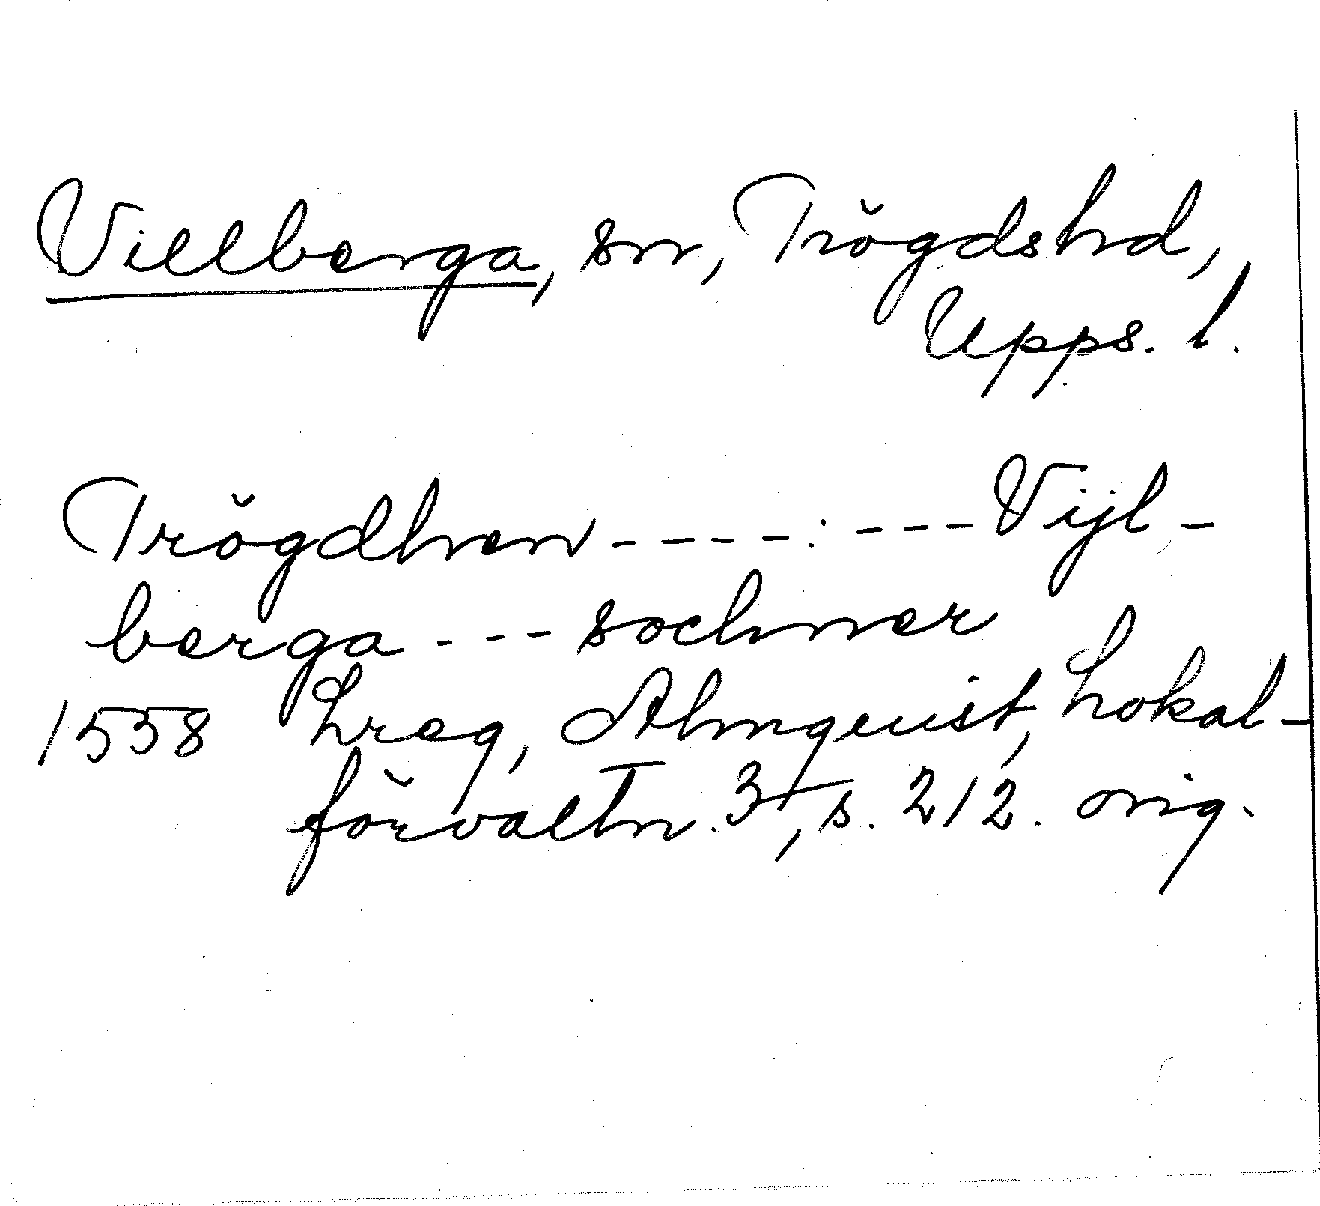 Villberga, sn, Trögds hd,
Upps. l.
Trögdhen ----: --- Vijl-
berga --- sochner
1558 Lreg, Almquist, Lokal-
förvaltn. 3, s. 212. orig.